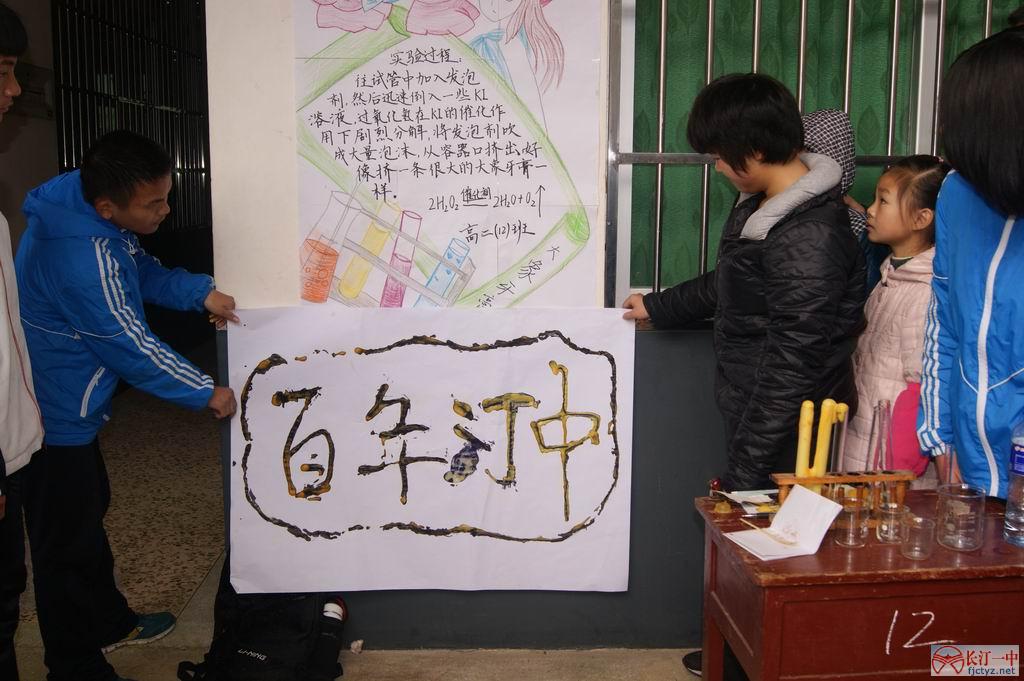 实验过程:
往试管中加入发泡
剂,然后迅速倒入一些KI
溶液,过氧化氢在KI的催化作
用下剧烈分解,将发泡剂吹
成大量泡沫,从容器口挤出,好
像挤一条很大的大象牙膏一
样.
2H₂O₂ 催化剂 2H₂O+O₂↑
高二(12)班
大象牙膏
百年汀中
12
长汀一中
fjctyz.net